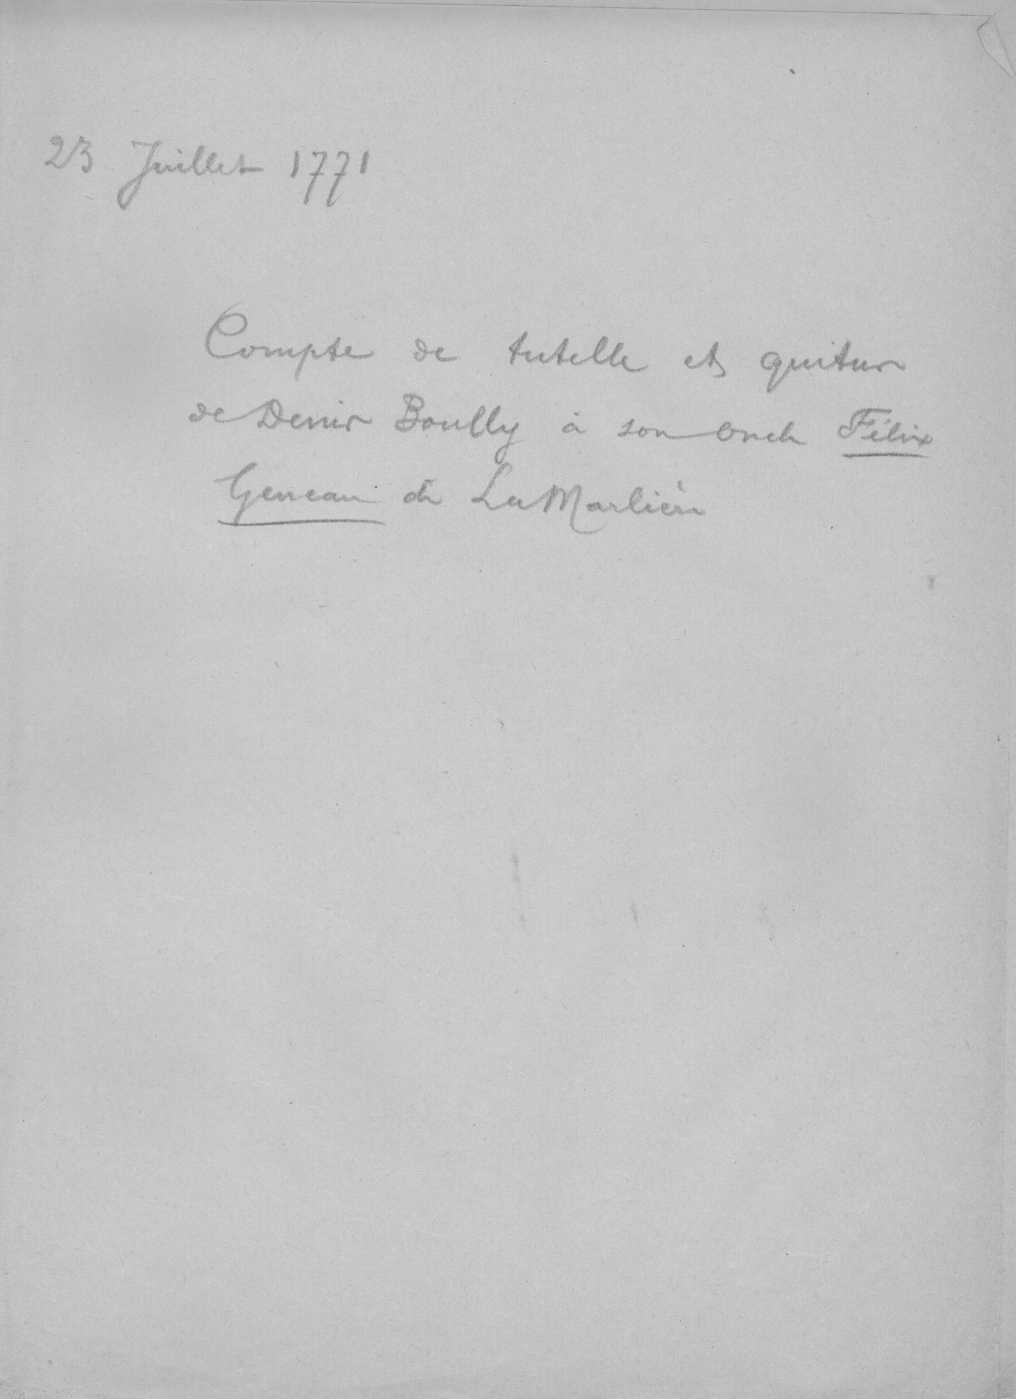 23 Juillet 1771
Compte de tutelle et quitus
de Denis Boully à son oncle Félix
Geneau de La Marlière